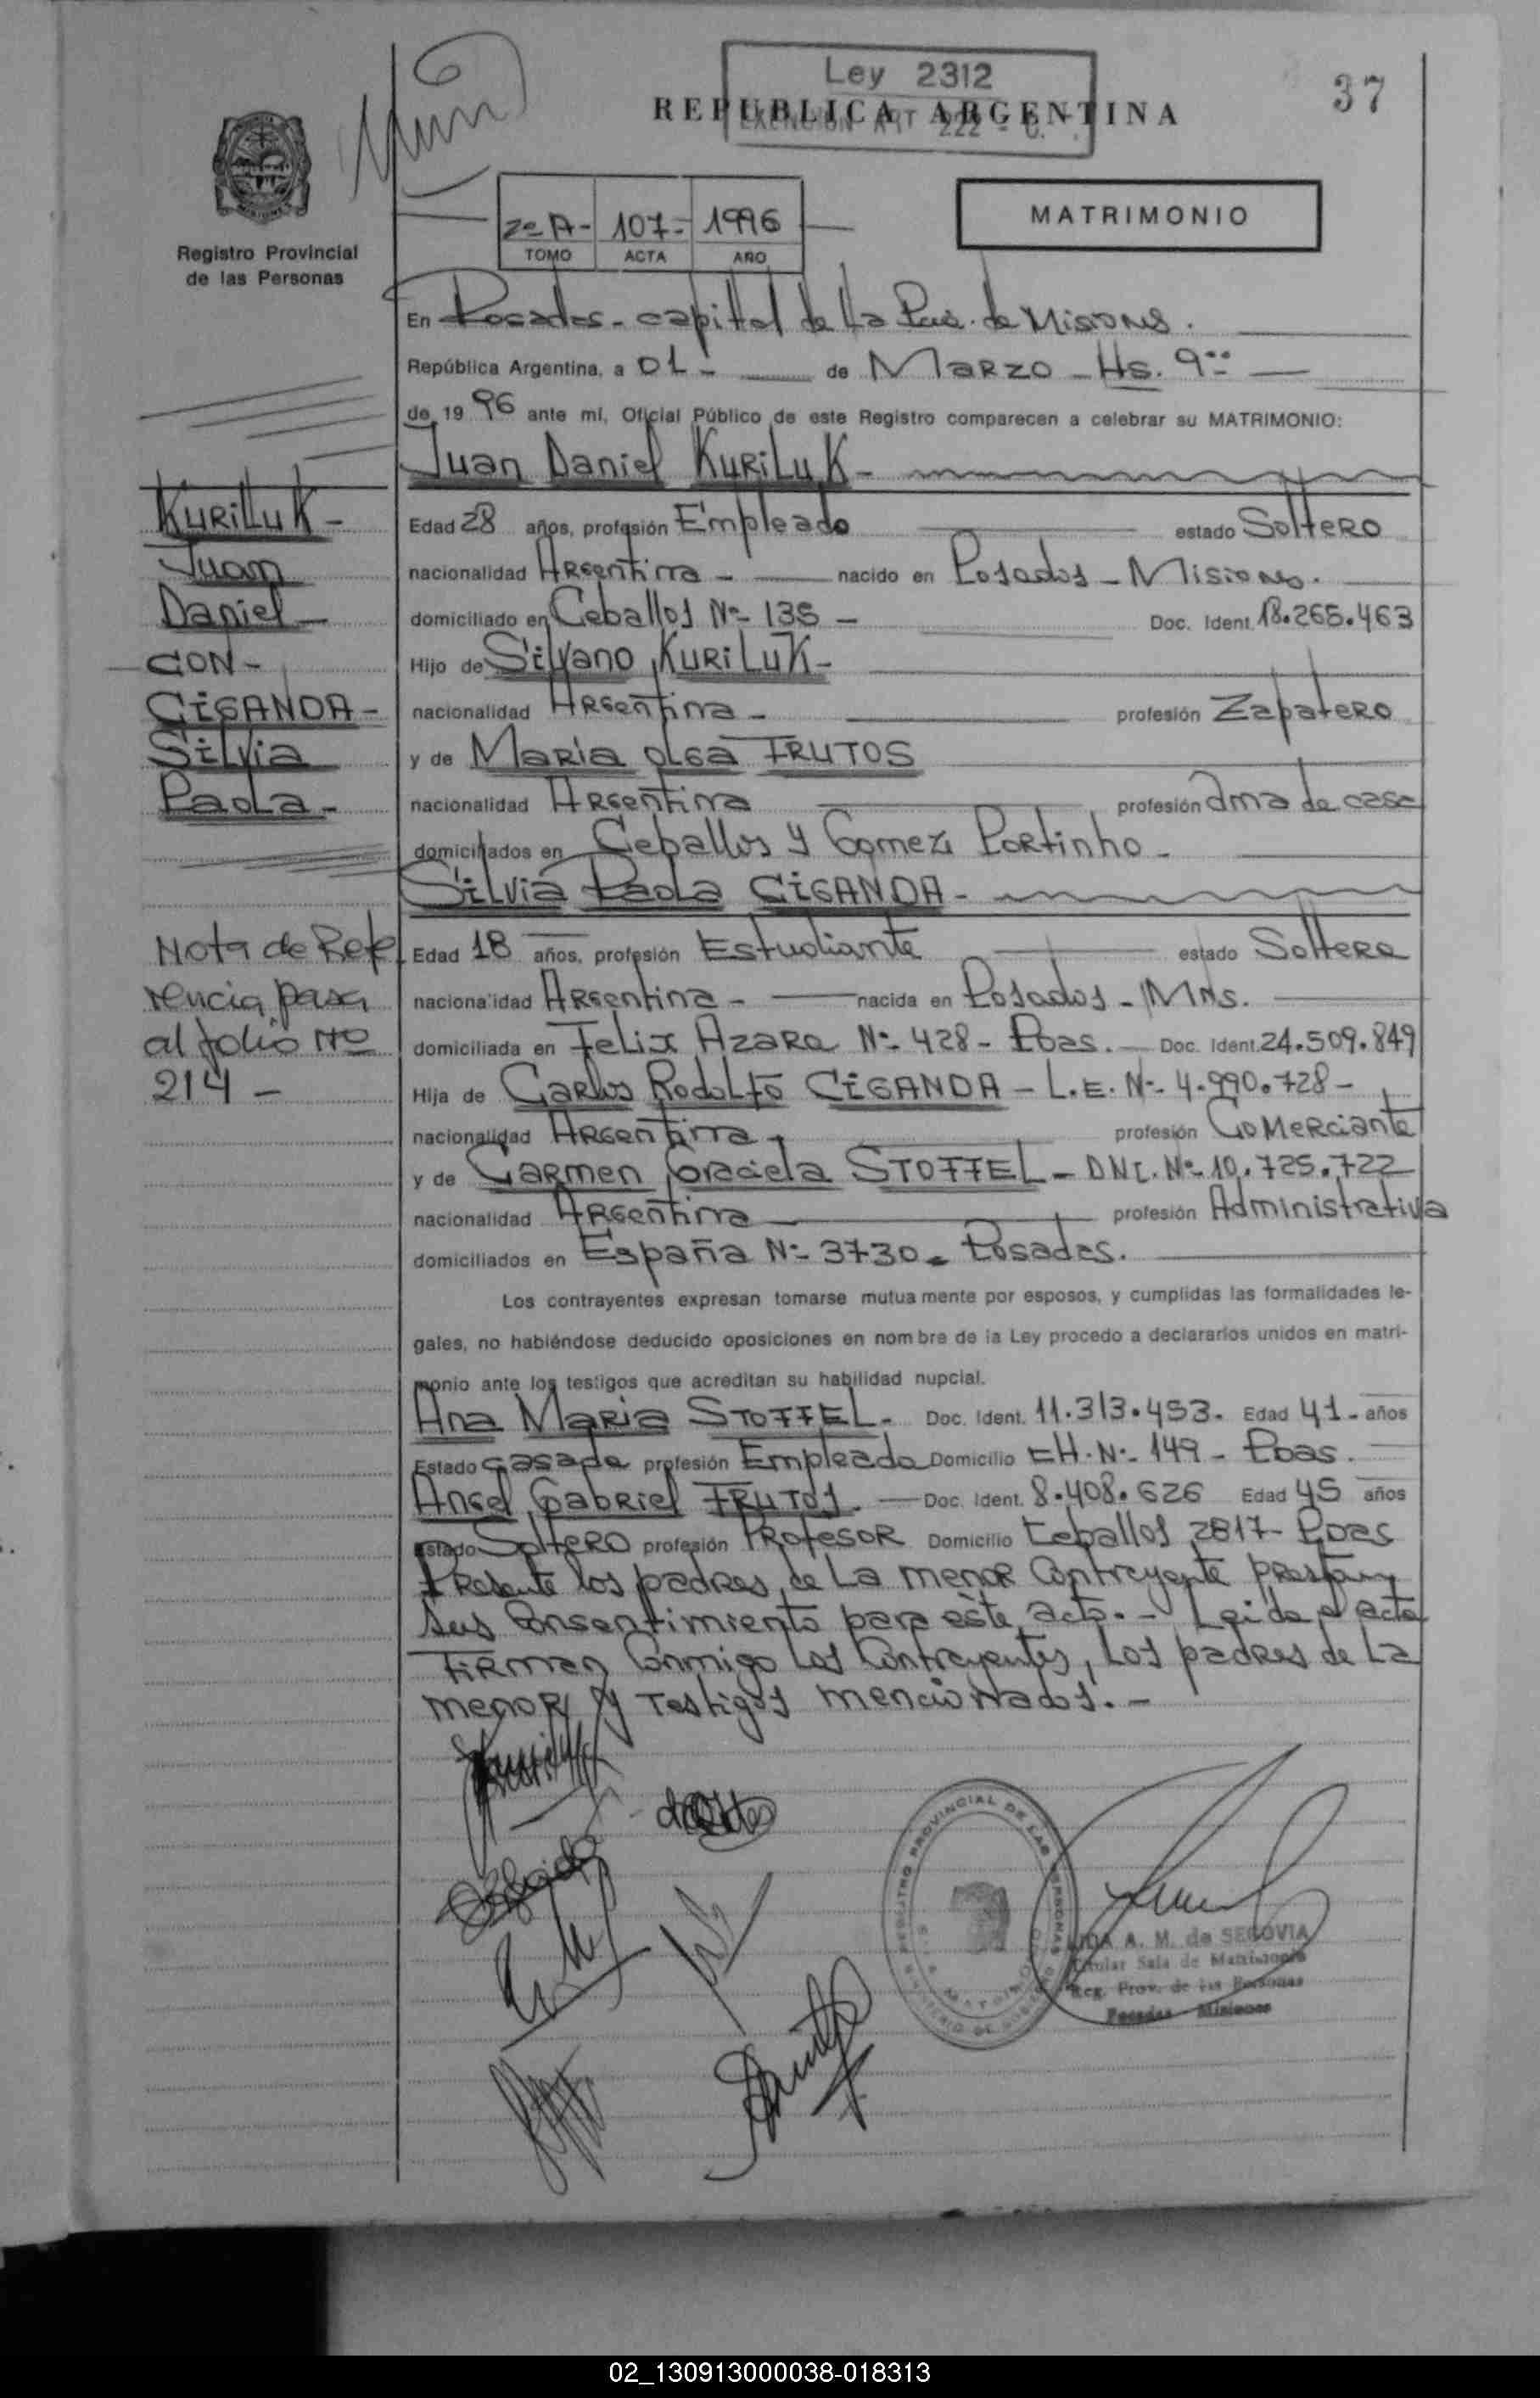 Ley 2312
REPUBLICA ARGENTINA
EXENCION ART 222 - C.
37
Registro Provincial
de las Personas
2º A- 107- 1996
TOMO ACTA AÑO
MATRIMONIO
En Posadas - capital de La Pcia. de Misiones.
República Argentina, a 01 - de Marzo - Hs. 9
de 19 96 ante mí, Oficial Público de este Registro comparecen a celebrar su MATRIMONIO:
Juan Daniel KURILUK -
Edad 28 años, profesión Empleado estado Soltero
nacionalidad Argentina - nacido en Posadas - Misiones.
domiciliado en Ceballos Nº 135 - Doc. Ident. 18.265.463
Hijo de Silvano KURILUK -
nacionalidad Argentina - profesión Zapatero
y de Maria Olga FRUTOS
nacionalidad Argentina profesión ama de casa
domiciliados en Ceballos y Gomez Portinho -
Silvia Paola CIGANDA -
Edad 18 años, profesión Estudiante estado Soltera
nacionalidad Argentina - nacida en Posadas - Mns.
domiciliada en Felix Azara Nº 428 - Pdas. - Doc. Ident. 24.509.849
Hija de Carlos Rodolfo CIGANDA - L.E. Nº 4.990.728 -
nacionalidad Argentina - profesión Comerciante
y de Carmen Graciela STOFFEL - DNI. Nº 10.725.722
nacionalidad Argentina profesión Administrativa
domiciliados en España Nº 3730 - Posadas.
Los contrayentes expresan tomarse mutuamente por esposos, y cumplidas las formalidades le-
gales, no habiéndose deducido oposiciones en nombre de la Ley procedo a declararlos unidos en matri-
monio ante los testigos que acreditan su habilidad nupcial.
Ana Maria STOFFEL - Doc. Ident. 11.313.453 - Edad 41 - años
Estado casada profesión Empleada Domicilio CH. Nº 149 - Pdas.
Angel Gabriel FRUTOS - Doc. Ident. 8.408.626 Edad 45 años
Estado Soltero profesión Profesor Domicilio Ceballos 2817 - Pdas
Presente los padres de La menor Contrayente prestan
sus Consentimiento para este acto. - Leida el acta
Firman Conmigo Los Contrayentes, Los padres de La
menor y Testigos mencionados. -
KURILUK -
Juan
Daniel -
CON -
CIGANDA -
Silvia
Paola -
Nota de Refe
rencia pasa
al folio Nº
214 -
REGISTRO PROVINCIAL DE LAS PERSONAS
A. M. de SEGOVIA
Titular Sala de Matrimonio
Reg. Prov. de las Personas
Posadas Misiones
02_130913000038-018313